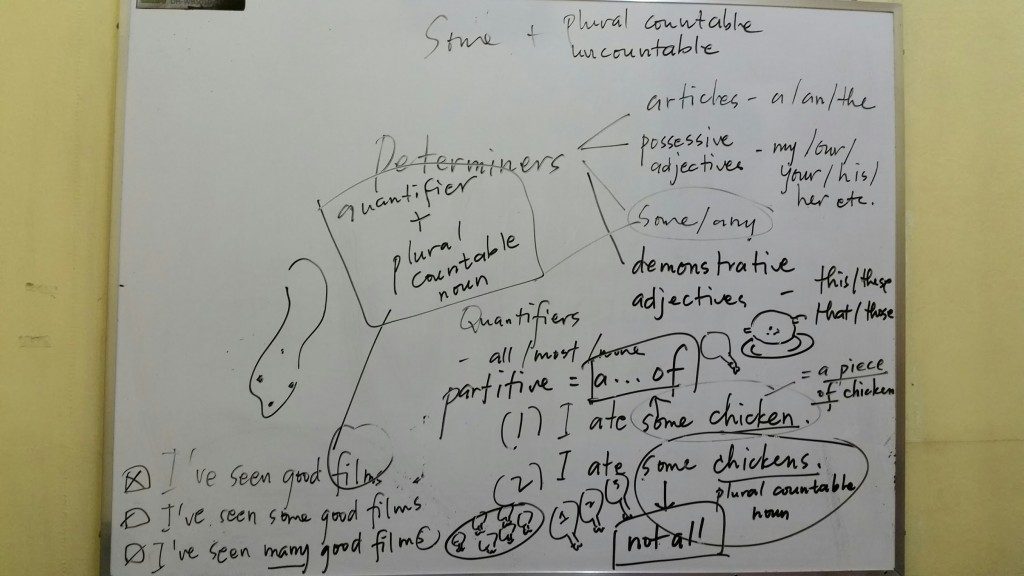 Some + plural countable
uncountable
articles - a/an/the
Determiners
possessive
adjectives - my/our/
your/his/
her etc.
some/any
demonstrative
adjectives - this/these
that/those
quantifier
+
plural
countable
noun
Quantifiers
- all/most/none
partitive = a... of
= a piece
of chicken
(1) I ate some chicken.
(2) I ate some chickens.
plural countable
noun
not all
1 2 3
I've seen good films
I've seen some good films
I've seen many good films